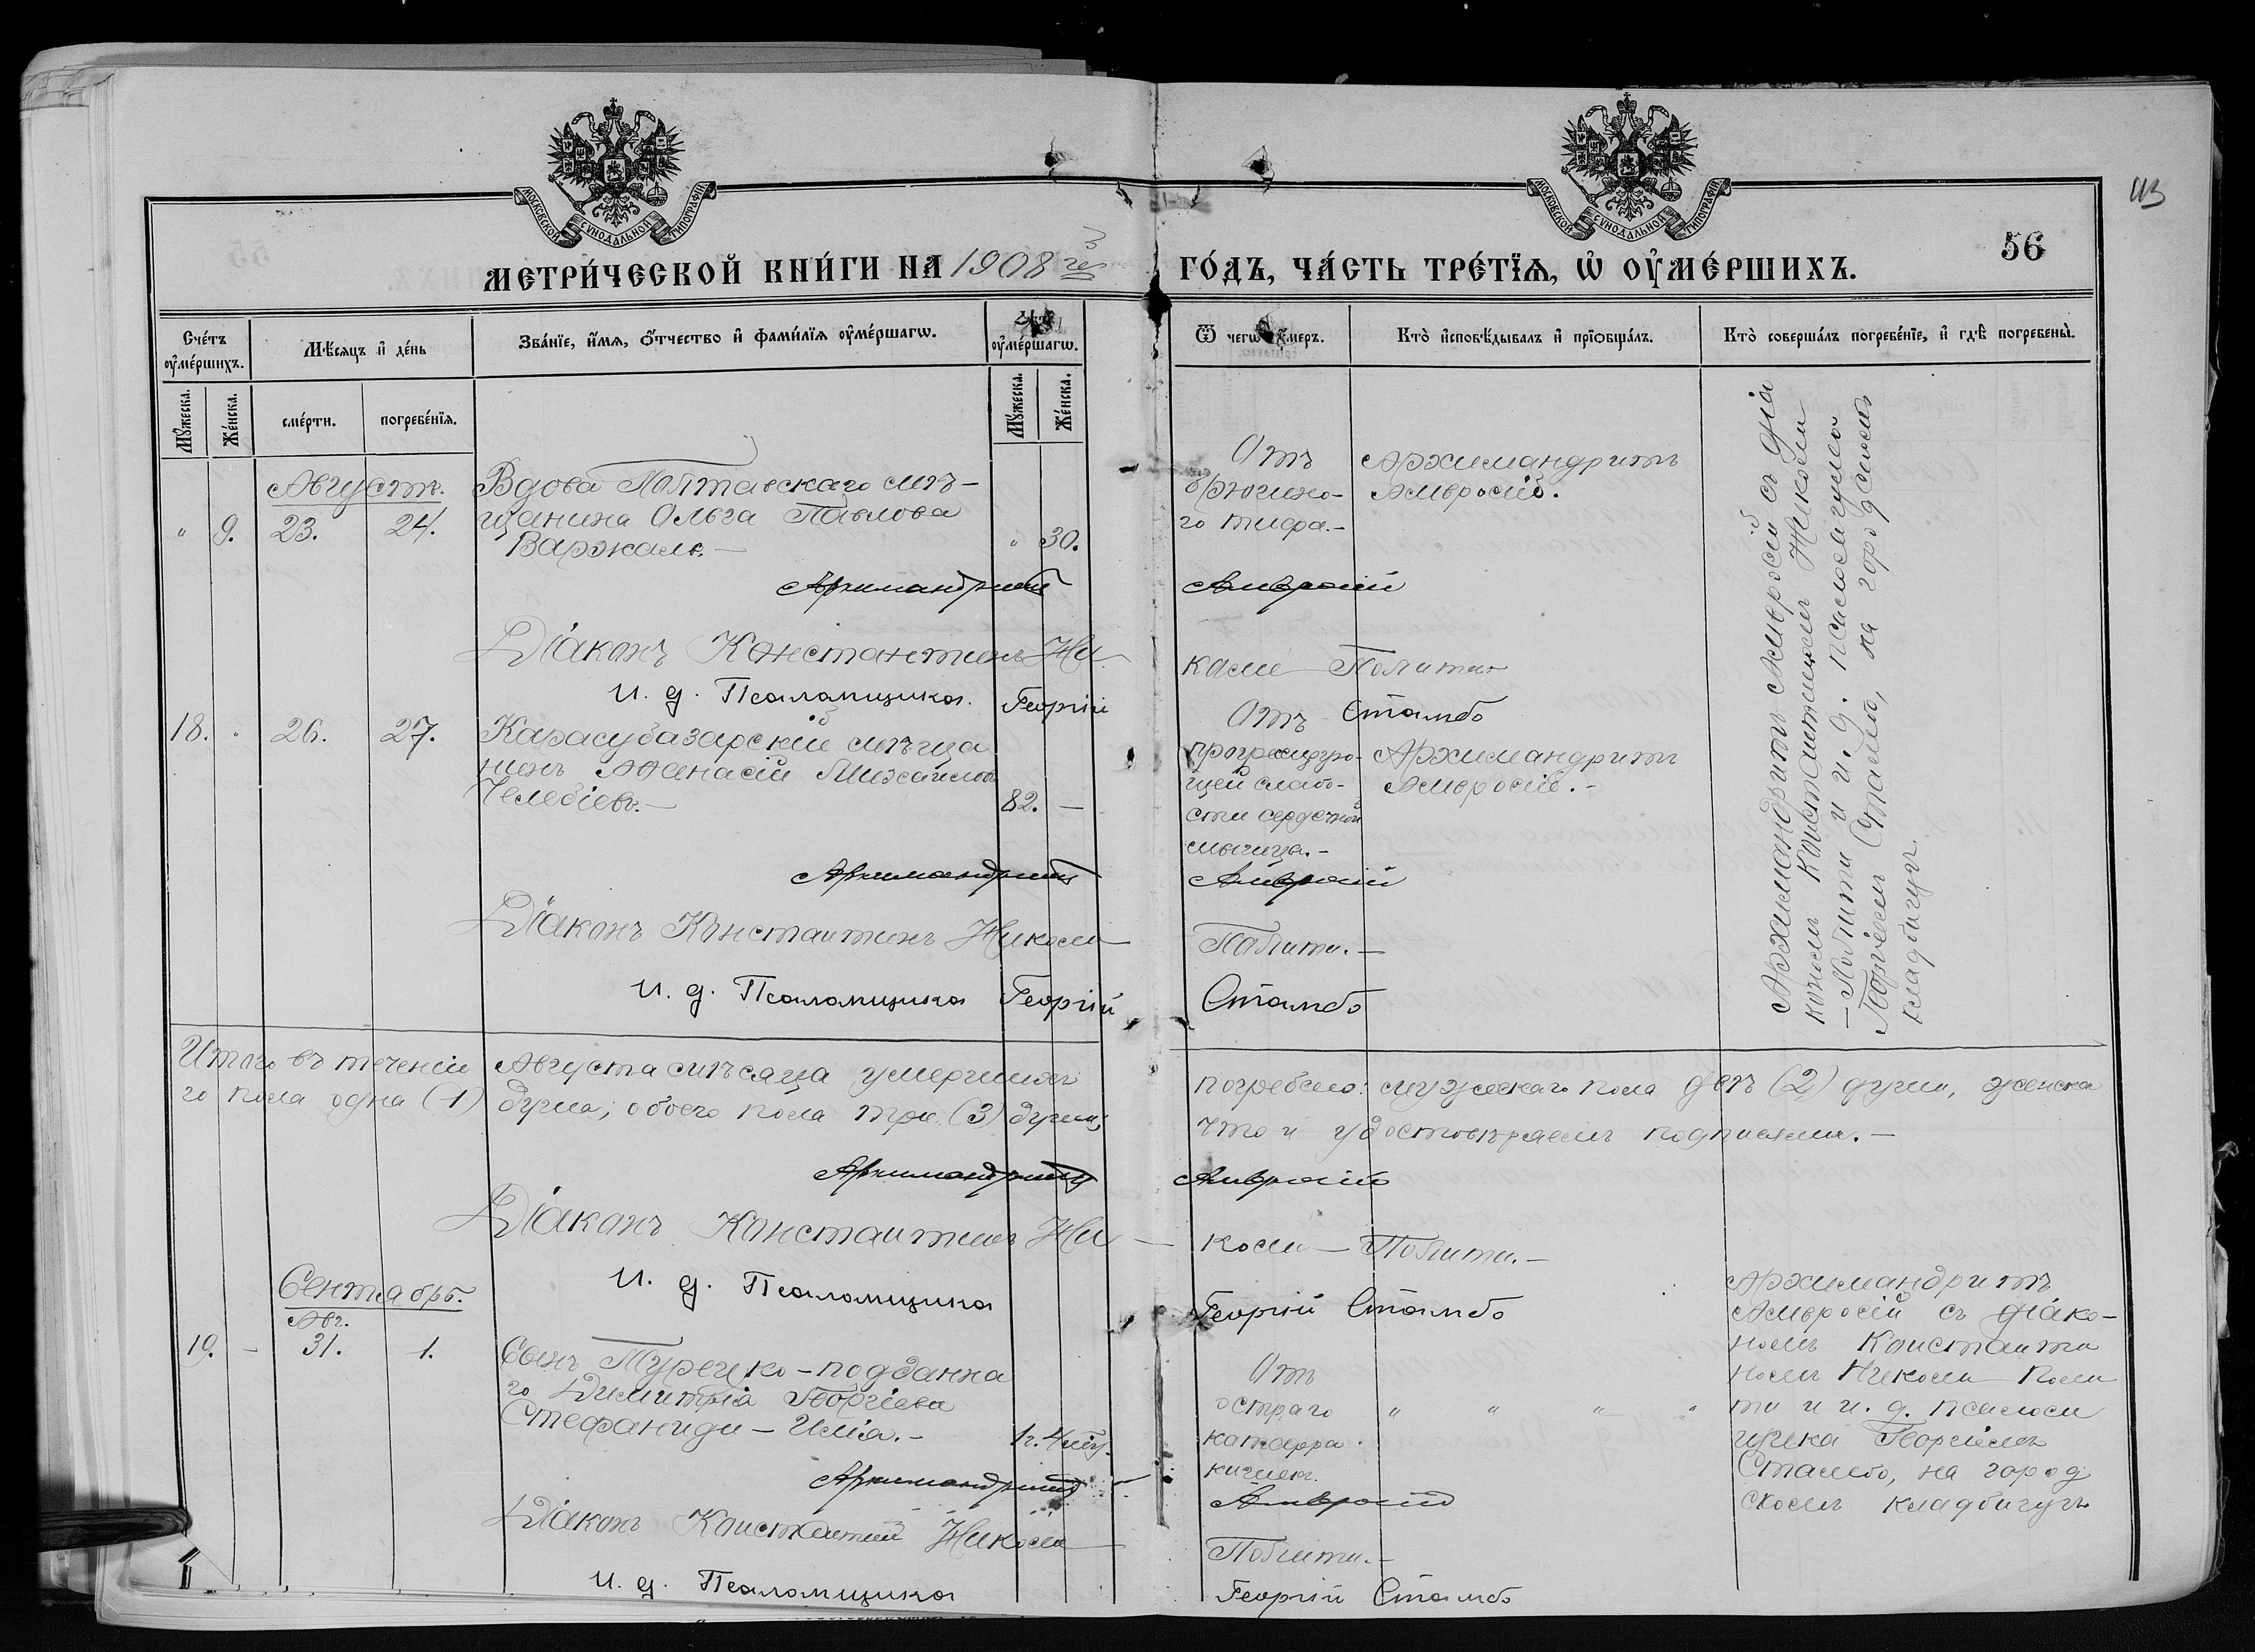 МОСКОВСКОЙ СУНОДАЛЬНОЙ ТИПОГРАФІИ
МОСКОВСКОЙ СУНОДАЛЬНОЙ ТИПОГРАФІИ
56
МЕТРИ́ЧЕСКОЙ КНИ́ГИ НА 1908 й ГО́ДЪ, ЧА́СТЬ ТРЕ́ТЇѦ, Ѡ҆ ОУ҆МЕ́РШИХЪ.
Сче́тъ оу҆ме́ршихъ.
Мѣ́сѧцъ и҆ де́нь
Зва́нїе, и҆́мѧ, ѻ҆́тчество и҆ фами́лїѧ оу҆ме́ршагѡ.
оу҆ме́ршагѡ.
Ѿ чегѡ̀ оу҆́меръ.
Кто̀ и҆сповѣ́дывалъ и҆ прїѡбща́лъ.
Кто̀ соверша́лъ погребе́нїе, и҆ гдѣ̀ погребены̀.
Мꙋ́жеска.
Же́нска.
сме́рти.
погребе́нїѧ.
Мꙋ́жеска.
Же́нска.
Августъ.
" 9. 23. 24.
Вдова Полтавскаго мѣ-
щанина Ольга Павлова
Варжаль.—
" 30.
Отъ
брюшно-
го тифа.—
Архимандритъ
Амвросій.
Архимандритъ Амвросій
Діаконъ Константинъ Ни-
коли Полити
И. д. Псаломщика Георгій Стамбо
18. " 26. 27.
Карасубазарскій мѣща
нинъ Афанасій Михайловъ
Челебіевъ.—
82. —
Отъ
прогрессирую-
щей слабо-
сти сердечной
мышцы.—
Архимандритъ
Амвросій.—
Архимандритъ Амвросій
Діаконъ Константинъ Николи—
Полити.—
И. д. Псаломщика Георгій Стамбо
Архимандритъ Амвросій съ діа
кономъ Константиномъ Николи
—Полити и и. д. псаломщика
Георгіемъ Стамбо, на городскомъ
кладбищѣ.
Итого въ теченіи Августа мѣсяца умершихъ погребено: мужескаго пола двѣ (2) души, женска
го пола одна (1) душа, обоего пола три (3) души,
что и удостовѣряемъ подписями.—
Архимандритъ Амвросій
Діаконъ Константинъ Ни—
коли—Полити.—
И. д. Псаломщика Георгій Стамбо
Сентябрь.
Авг.
19. — 31. 1.
Сынъ Турецко-подданна
го Димитрія Георгіева
Стефаниди—Илія.—
1г. 4мѣ.
Отъ
остраго
катарра
кишекъ.
" " " "
Архимандритъ
Амвросій съ діако-
номъ Константи
номъ Николи Поли
ти и и. д. псалом
щика Георгіемъ
Стамбо, на город
скомъ кладбищѣ
Архимандритъ Амвросій
Діаконъ Константинъ Николи—
Полити.—
И. д. Псаломщика
Георгій Стамбо